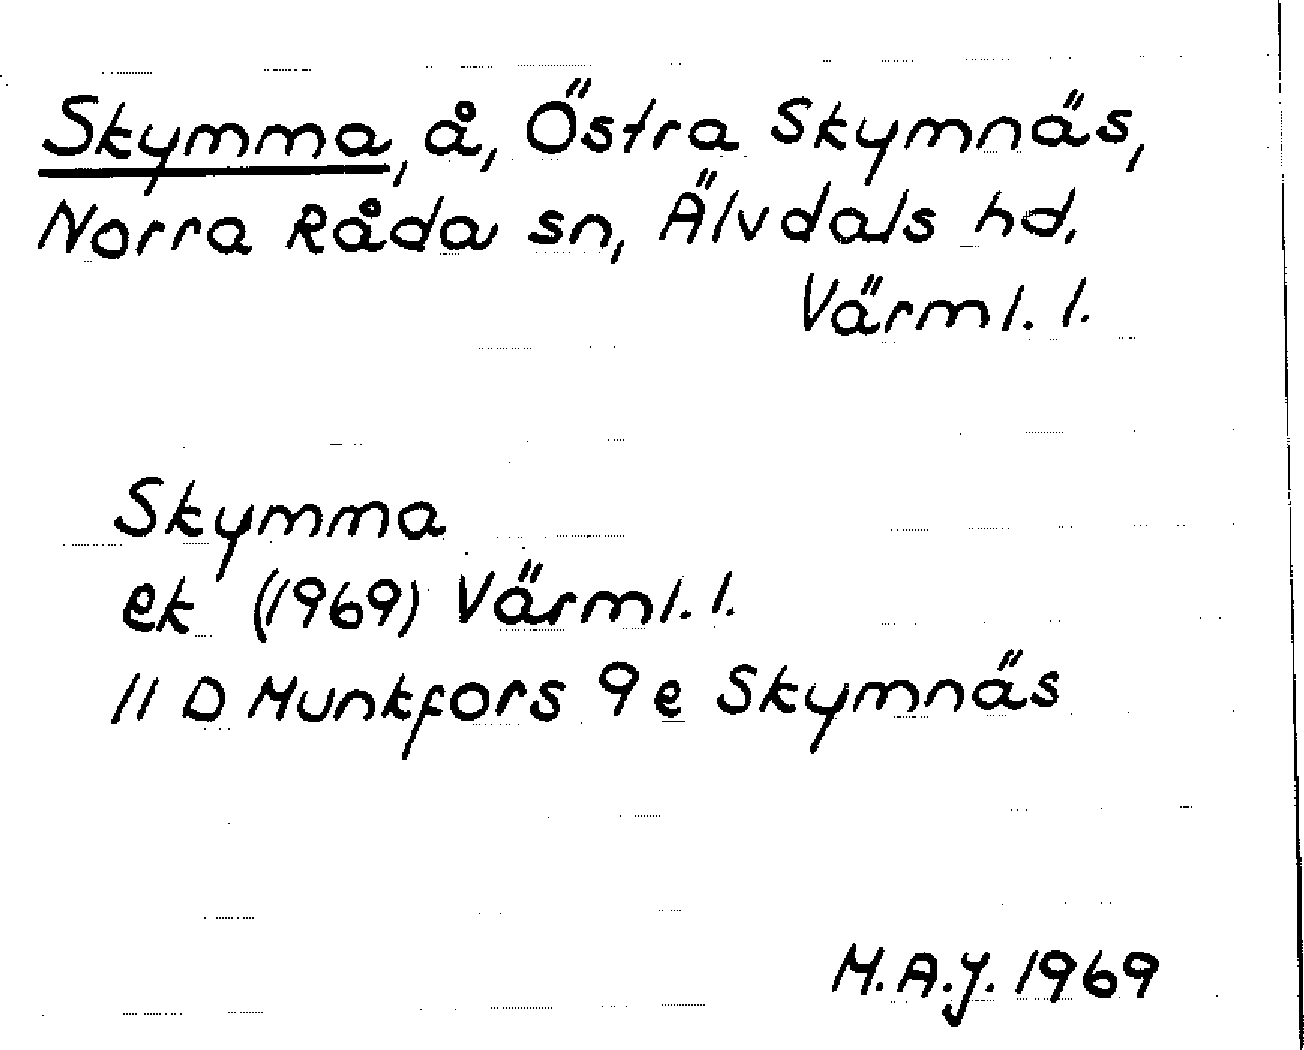 Skymma, å, Östra Skymnäs,
Norra Råda sn, Älvdals hd.
Värml. l.
Skymma
ek (1969) Värml. l.
11 D Munkfors 9 e Skymnäs
M.A.J. 1969